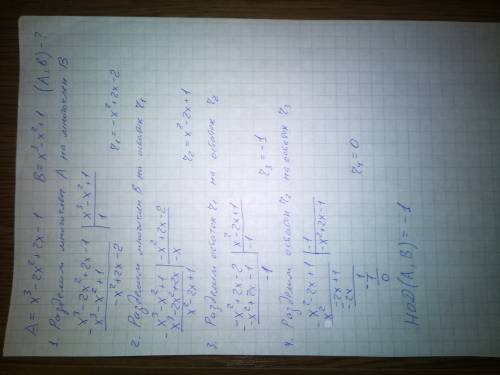 A = x³ - 2x² + 2x - 1   B = x³ - x² + 1   (A, B) - ?
1. Разделим многочлен A на многочлен B
- x³ - 2x² + 2x - 1 | x³ - x² + 1
x³ - x² + 1 | 1
- x² + 2x - 2
r₁ = - x² + 2x - 2
2. Разделим многочлен B на остаток r₁
- x³ - x² + 1 | - x² + 2x - 2
x³ - 2x² + 2x | - x
x² - 2x + 1
r₂ = x² - 2x + 1
3. Разделим остаток r₁ на остаток r₂
- - x² + 2x - 2 | x² - 2x + 1
- x² + 2x - 1 | - 1
- 1
r₃ = - 1
4. Разделим остаток r₂ на остаток r₃
- x² - 2x + 1 | - 1
x² | - x² + 2x - 1
- - 2x + 1
- 2x
- 1
1
0
r₄ = 0
НОД (A, B) = - 1